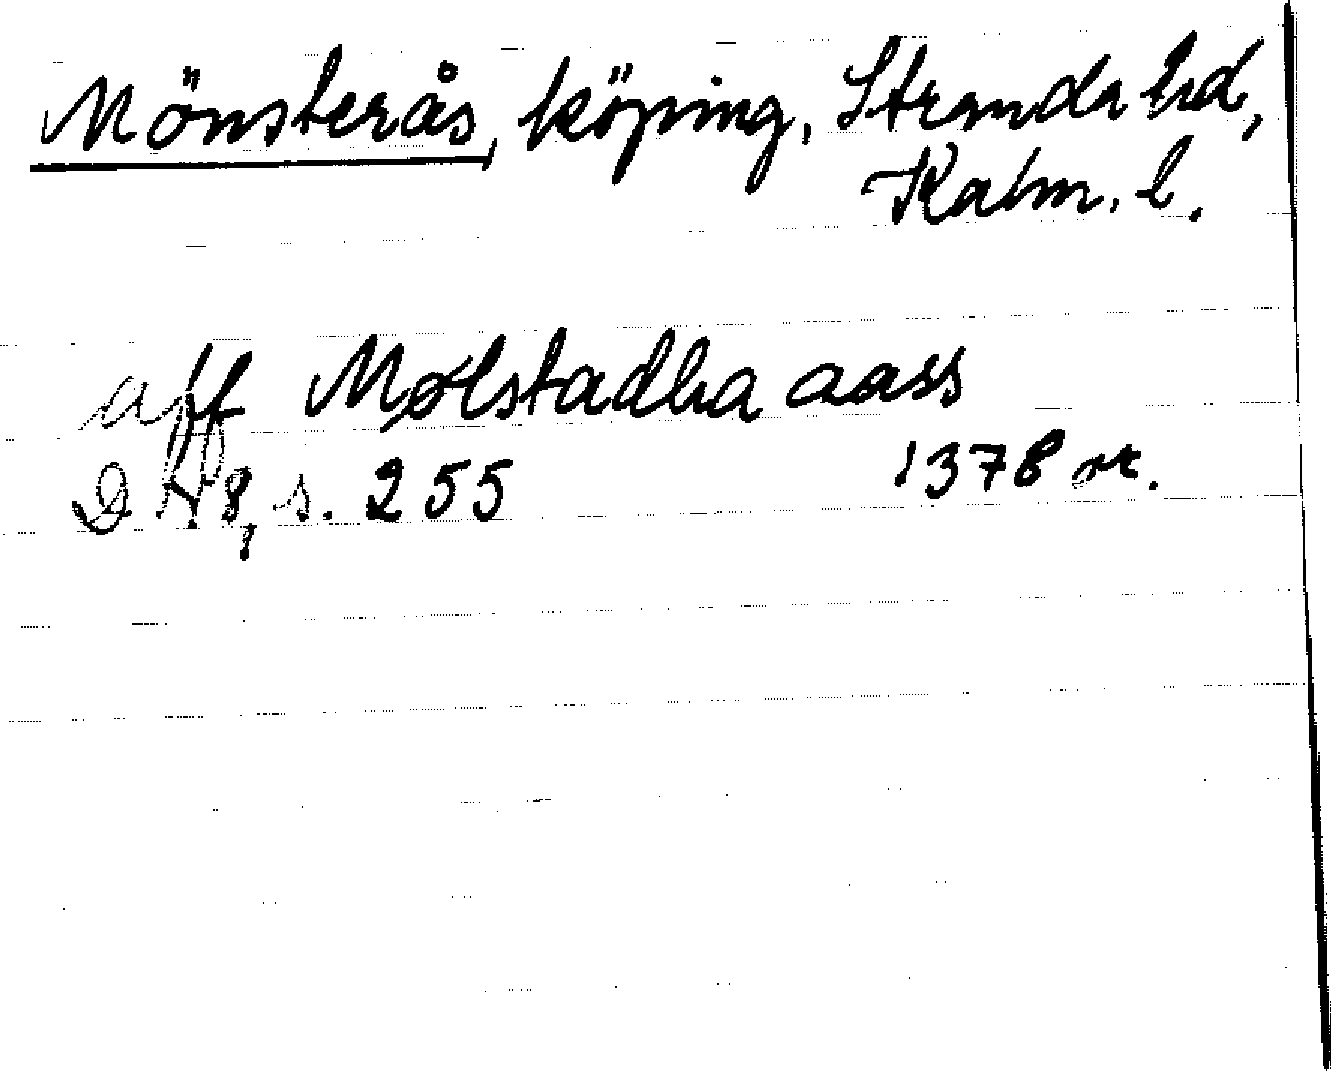 Mönsterås, köping, Stranda hd,
Kalm. l.
aff Mølstadha aass
DH 8, s. 255 1378 or.